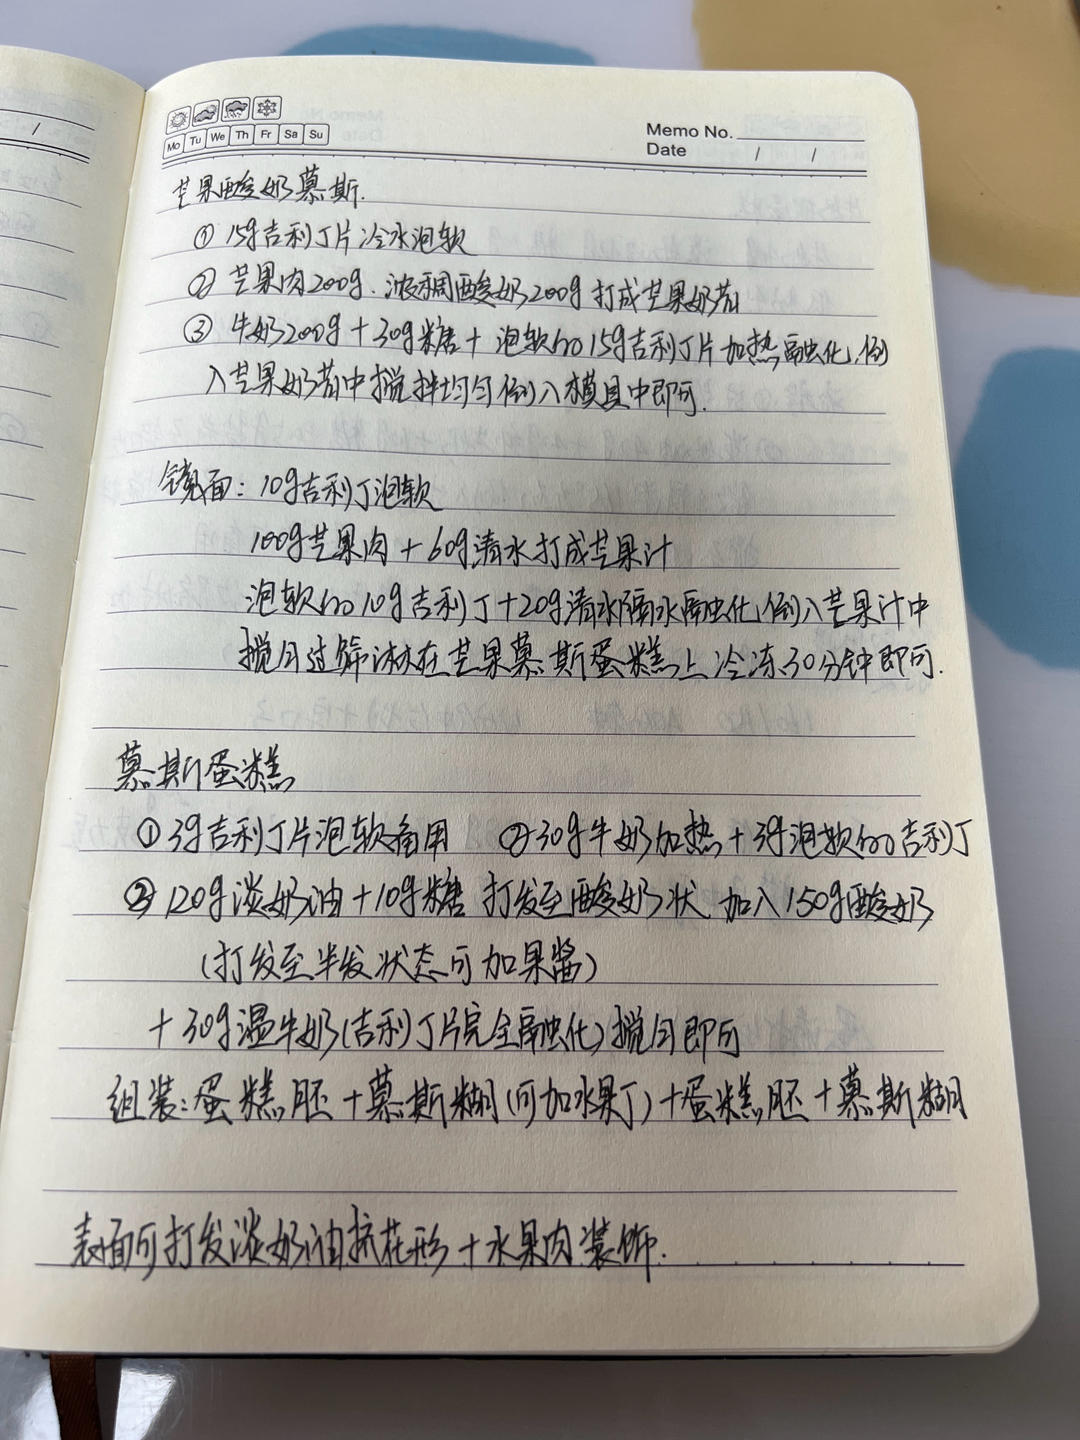 Mo Tu We Th Fr Sa Su
Memo No.
Date / /
芒果酸奶慕斯.
① 15g吉利丁片冷水泡软
② 芒果肉200g.浓稠酸奶200g打成芒果奶昔
③ 牛奶200g+30g糖+泡软的15g吉利丁片加热融化,倒
入芒果奶昔中搅拌均匀倒入模具中即可.
镜面:10g吉利丁泡软
100g芒果肉+60g清水打成芒果汁
泡软的10g吉利丁+20g清水隔水融化,倒入芒果汁中
搅匀过筛淋在芒果慕斯蛋糕上冷冻30分钟即可.
慕斯蛋糕
①3g吉利丁片泡软备用 ②30g牛奶加热+3g泡软的吉利丁
③120g淡奶油+10g糖 打发至酸奶状,加入150g酸奶
(打发至半发状态可加果酱)
+30g温牛奶(吉利丁片完全融化)搅匀即可
组装:蛋糕胚+慕斯糊(可加水果丁)+蛋糕胚+慕斯糊
表面可打发淡奶油挤花形+水果肉装饰.